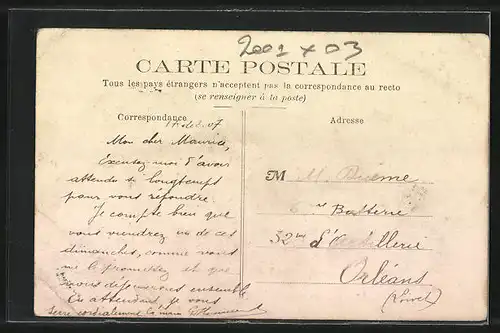 2001 x 03
CARTE POSTALE
Tous les pays étrangers n'acceptent pas la correspondance au recto
(se renseigner à la poste)
Correspondance
Adresse
Mon cher Maurice,
Excusez-moi d'avoir
attendu si longtemps
pour vous répondre.
Je compte bien que
vous viendrez un de ces
dimanches, comme vous
me le promettez et que
nous déjeunerons ensemble
En attendant, je vous
serre cordialement la main
M M.
6me Batterie
32me d'Artillerie
Orléans
(Loiret)